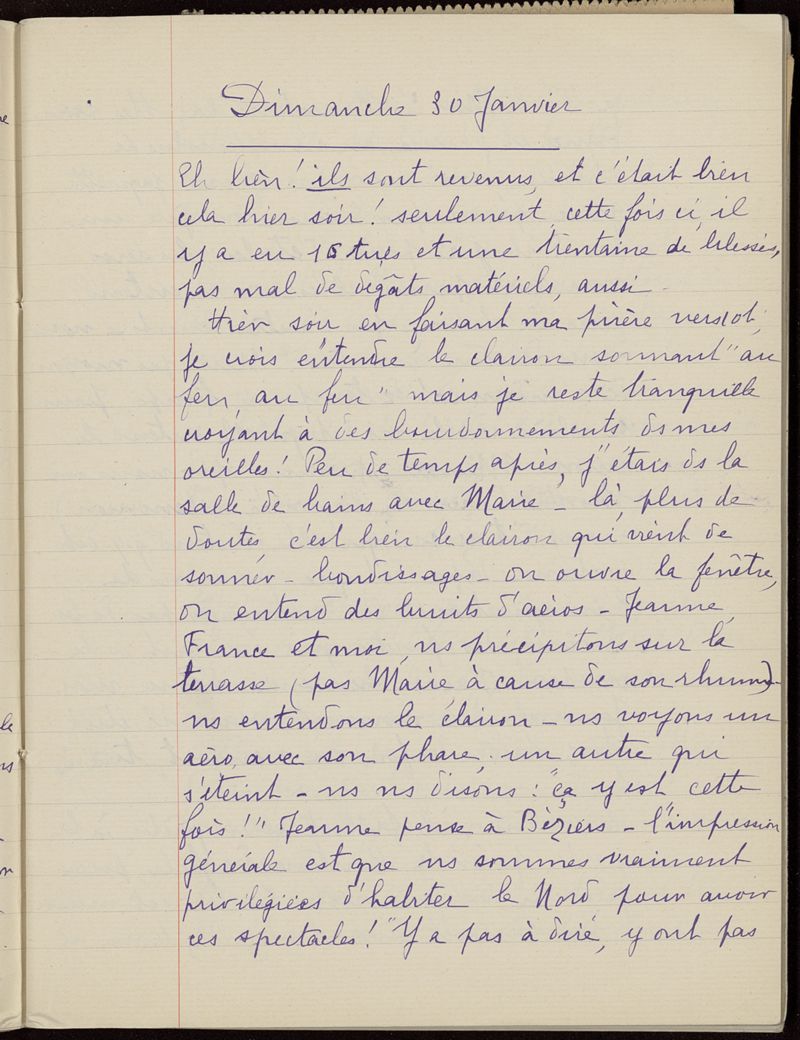 Dimanche 30 Janvier
Eh bien! ils sont revenus, et c'était bien
cela hier soir! seulement, cette fois ci, il
y a eu 15 tués et une trentaine de blessés,
pas mal de dégâts matériels, aussi.
Hier soir en faisant ma prière vers 10h,
je crois entendre le clairon sonnant "au
feu, au feu" mais je reste tranquille
croyant à des bourdonnements ds mes
oreilles! Peu de temps après, j'étais ds la
salle de bains avec Marie - là, plus de
doutes, c'est bien le clairon qui vient de
sonner - bondissages - on ouvre la fenêtre,
on entend des bruits d'aéros - Jeanne,
France et moi, ns précipitons sur la
terrasse (pas Marie à cause de son rhume) -
ns entendons le clairon - ns voyons un
aéro, avec son phare, un autre qui
s'éteint - ns ns disons: "ça y est cette
fois!" Jeanne pense à Béziers - l'impression
générale est que ns sommes vraiment
privilégiées d'habiter le Nord pour avoir
ces spectacles! "Y a pas à dire, y ont pas